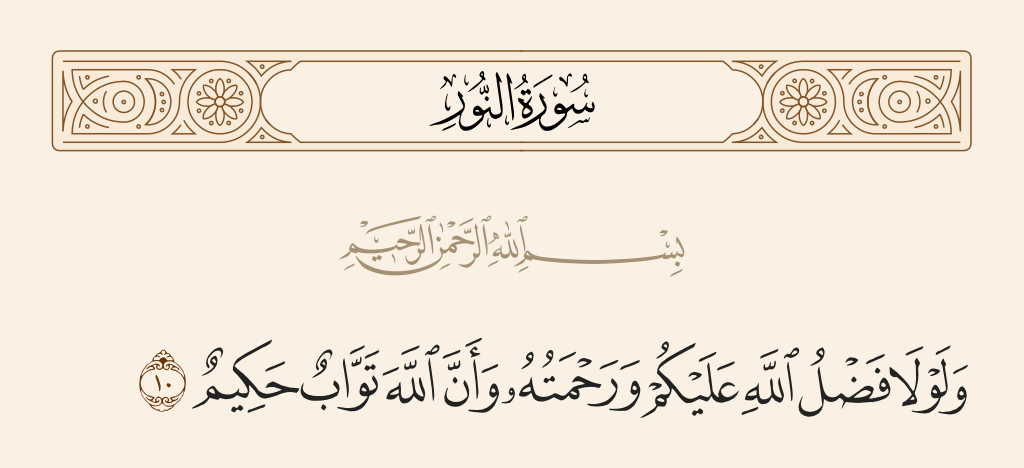 سُورَةُ النُّورِ
بِسْمِ ٱللَّهِ ٱلرَّحْمَٰنِ ٱلرَّحِيمِ
وَلَوْلَا فَضْلُ ٱللَّهِ عَلَيْكُمْ وَرَحْمَتُهُۥ وَأَنَّ ٱللَّهَ تَوَّابٌ حَكِيمٌ ١٠